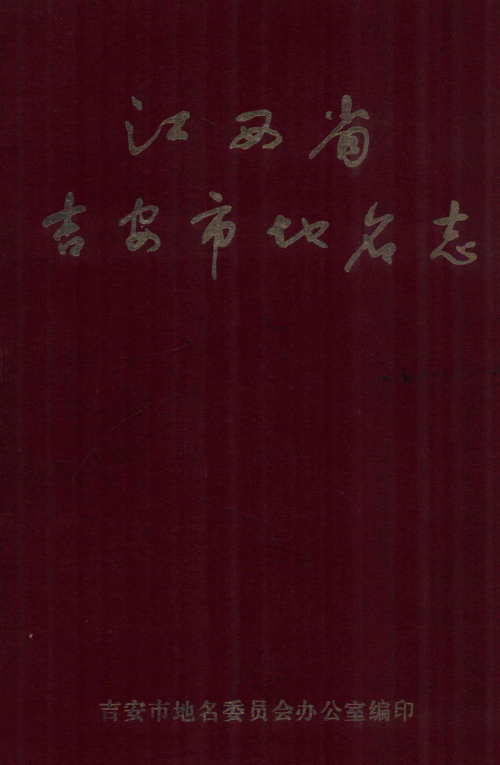 江西省
吉安市地名志
吉安市地名委员会办公室编印